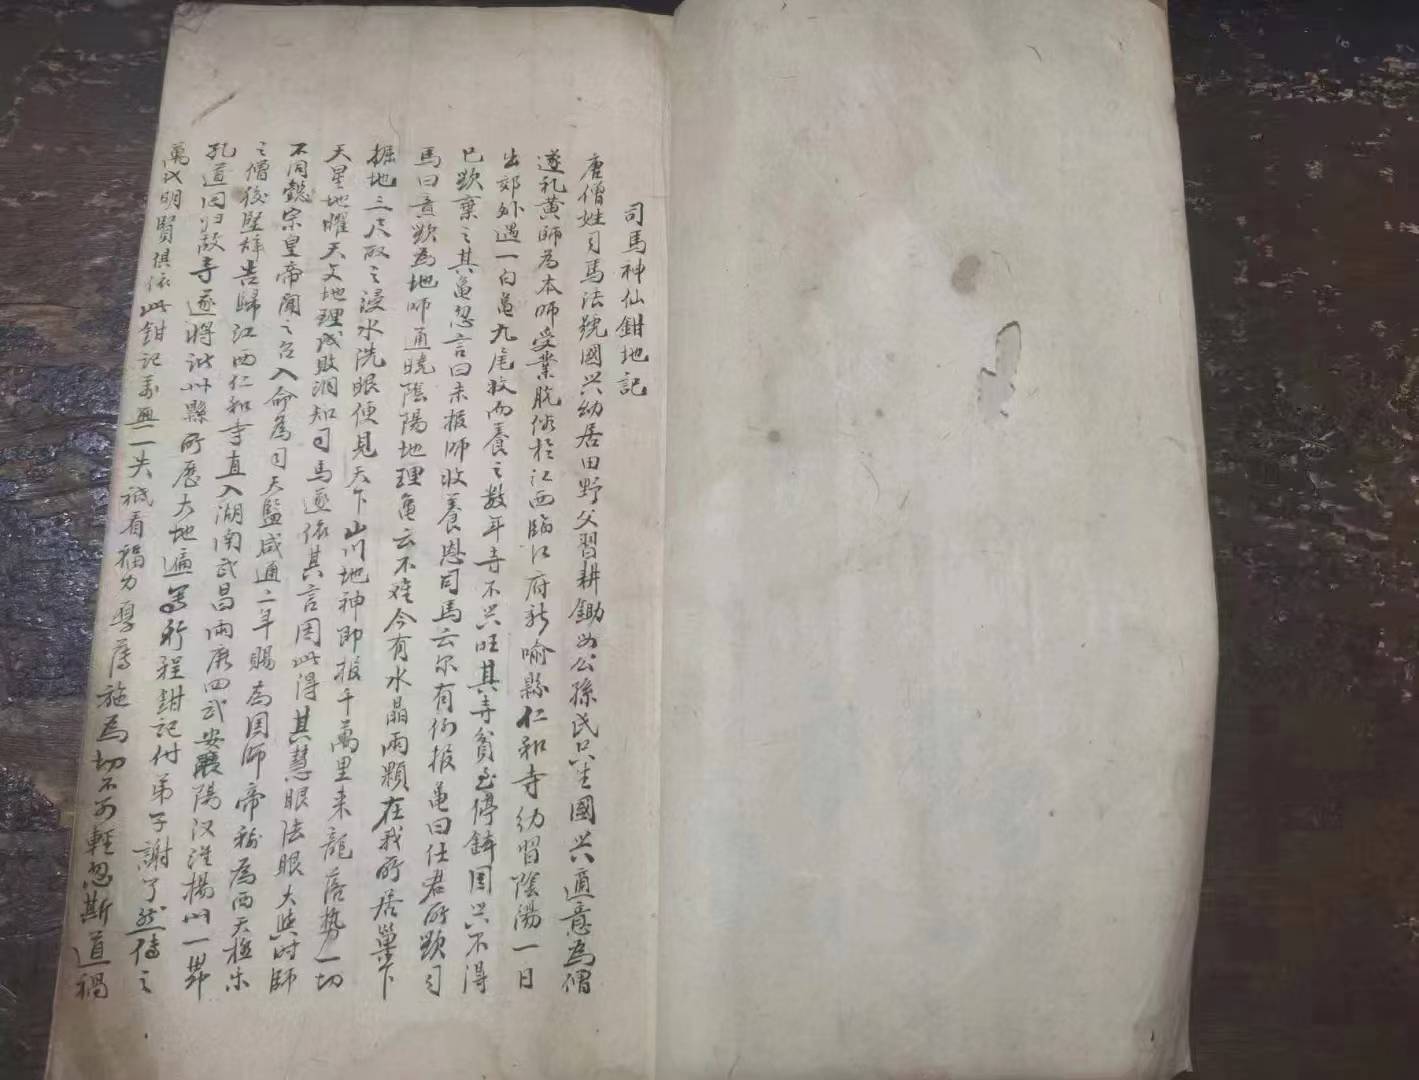 司馬神仙鉗地記
唐僧姓司馬法號國兴幼居田野父習耕鋤母公孫氏只生國兴適意為僧
遂礼黄師為本師受業脱俗於江西臨江府新喻縣仁和寺幼習陰陽一日
出郊外遇一白亀九尾收而養之数年寺不兴旺其寺貧乏停鉢国兴不得
已欵棄之其亀忽言曰未报師收養恩司馬云尔有何报亀曰任君所欵司
馬曰意欵為地师通曉陰陽地理亀云不难今有水晶兩顆在我所居巢下
掘地三尺取之浸水洗眼便見天下山川地神即报千萬里来龍落勢一切
天星地曜天文地理成敗洞知司馬遂依其言因此得其慧眼法眼大與时師
不同懿宗皇帝聞之召入命為司天監咸通二年賜為国师帝称為西天極乐
之僧後坚辞告歸江西仁和寺直入湖南武昌兩廣四武安襄陽汉淮揚州一带
孔道回归故寺遂将诸州縣所歷大地遍寫行程鉗記付弟子謝了然傳之
萬代明賢俱依此鉗記萬無一失祗看福力厚薄施為切不可輕忽斯道禍